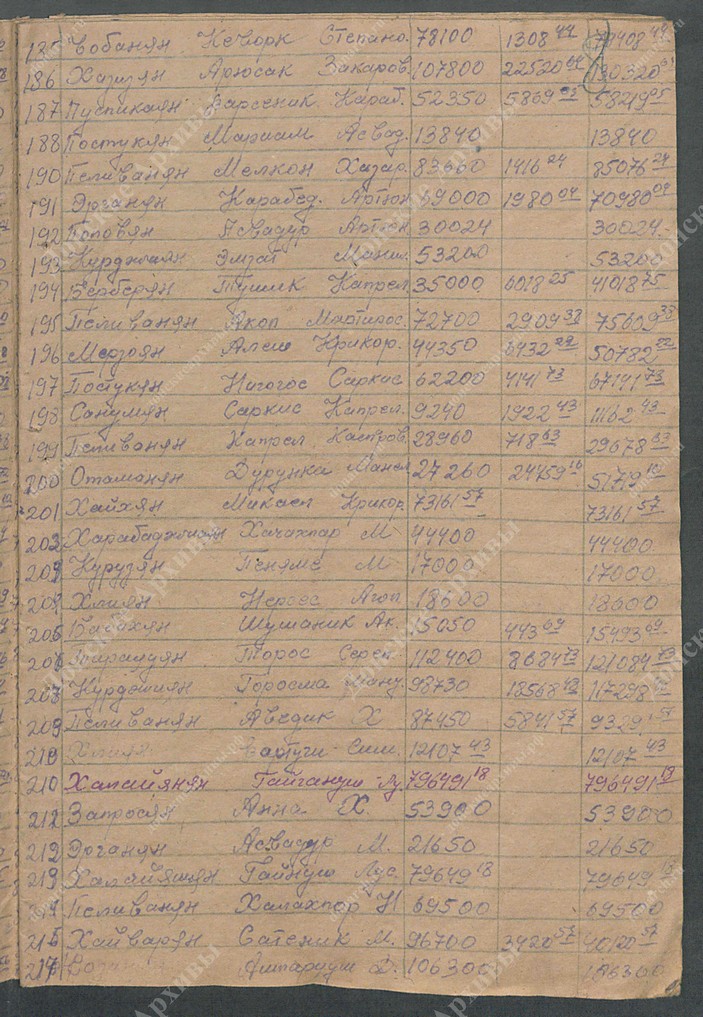 185 Чобанян Кеворк Степано. 78100 1308 44 79408 44
186 Хазизян Арюсак Закаров. 107800 22520 64 130320 64
187 Пуспикаян Варсеник Караб. 52350 5869 95 58219 95
188 Постукян Мариам Асвад. 13840 13840
190 Пеливанян Мелкон Хазар. 83660 1416 24 85076 24
191 Эрганян Карабед. Артюн 69000 1980 04 70980 04
192 Поповян Асвадур Артюн 30024 30024
193 Курджиян Эмзат Манис. 53200 53200
194 Берберян Тушик Капрел 35000 6018 25 41018 75
195 Пеливанян Акоп Мартирос. 72700 2909 33 75609 33
196 Мерзоян Крикор. 44350 6432 22 50782 22
197 Постукян Нигогос Саркис 62200 4141 73 67141 73
198 Санумян Саркис Капрел. 9240 1922 43 11162 43
199 Пеливанян Капрел Каспров 28960 718 63 29678 63
200 Отаманян Дурунка Манел 27260 24459 16 51719 16
201 Хайхян Микаел Крикор. 73161 57 73161 57
203 Харабаджиян Хачахпар М 44400 44400
204 Курузян Пеняме М 17000 17000
Хлиян Нерсес Агоп 18600 18600
205 Бабахян Шушаник Ак. 15050 443 69 15493 69
206 Торос Серек. 112400 8684 73 121084 73
207 Курджиян Горосма Ману 98730 18568 43 117298 43
209 Пеливанян Аведик Х 87450 5841 57 9329. 57
210 Вартуш Сим. 12107 43 12107 43
210 Хапайянян Гайгануш Лу 796491 18 796491 18
212 Запросян Анна Х. 53900 53900
212 Эрганян Асвадур М. 21650 21650
213 Халайянян Гайнуш Лус. 79649 18 79649 18
214 Пеливанян Халахпар Н 69500 69500
215 Хайварян Сатеник М. 96700 3420 57 40120 57
217 Амтаруш Д. 106300 106300